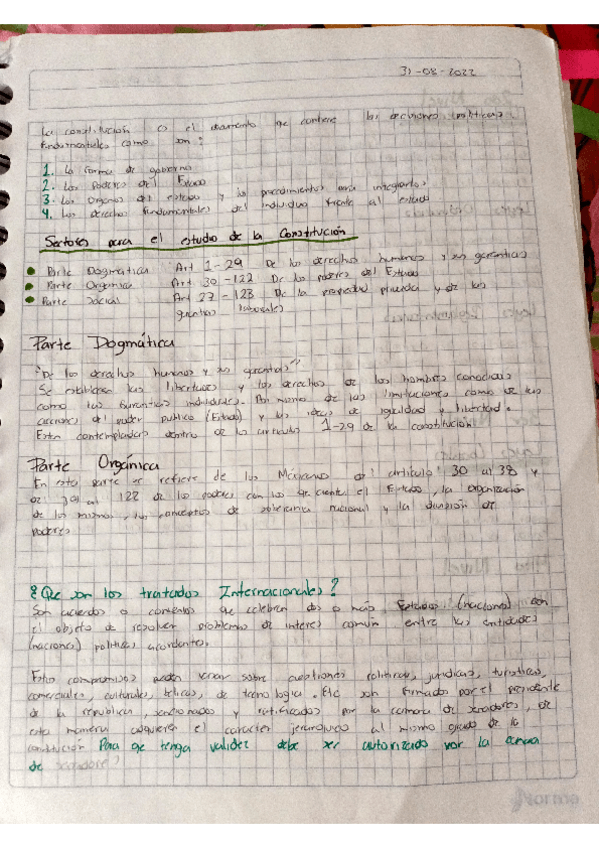 31-08-2022
La constitución es el documento que contiene las decisiones politicas
fundamentales como son:
1. La forma de gobierno
2. Los Poderes del Estado
3. Los Organos del estado y los procedimientos para integrarlos
4. Los derechos fundamentales del individuo frente al estado
Sectores para el estudio de la Constitución
Parte Dogmatica Art 1-29 De los derechos humanos y sus garantias
Parte Organica Art 30-122 De los poderes del Estado
Parte Social Art 27-123 De la propiedad privada y de las
garantias laborales
Parte Dogmática
"De los derechos humanos y sus garantias"
Se establecen las libertades y los derechos de los hombres conocidas
como las garantias individuales. Por medio de las limitaciones como de las
acciones del poder publico (Estado) y las ideas de igualdad y libertad.
Estan contempladas dentro de los articulos 1-29 de la constitución
Parte Orgánica
En esta parte se refiere de los Mexicanos del articulo 30 al 38 y
del 39 al 122 de los poderes con los que cuenta el Estado, la organización
de los mismos, los conceptos de soberania nacional y la división de
poderes
¿Que son los tratados Internacionales?
Son acuerdos o convenios que celebran dos o más Estados (naciones) con
el objeto de resolver problemas de interes común entre las entidades
(naciones) politicas
Estos compromisos pueden versar sobre cuestiones politicas, juridicas, turisticas,
comerciales, culturales, belicas, de tecnologia. Etc son firmado por el presidente
de la republica, sancionados y ratificados por la camara de senadores, de
esta manera adquieren el caracter jerarquico al mismo grado de la
constitución Para que tenga validez debe ser autorizado por la
de senadores
Norma